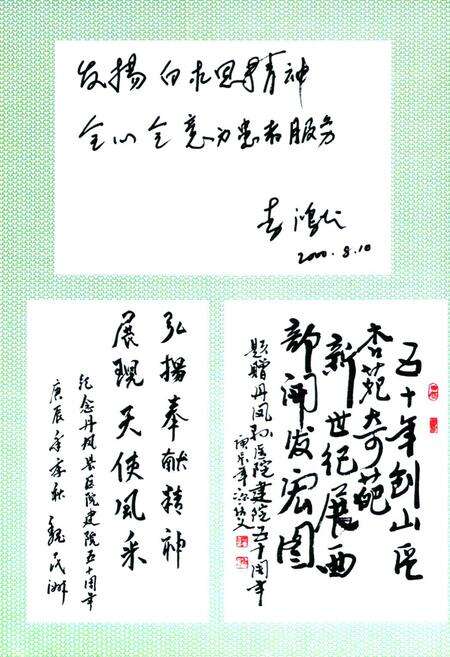 发揚白求恩精神
全心全意为患者服务
2000.8.10
弘揚奉献精神
展现天使风采
纪念丹凤县医院建院五十周年
庚辰年季秋
五十年创山区
杏苑奇葩
新世纪展西
部开发宏图
题赠丹凤县医院建院五十周年
庚辰年